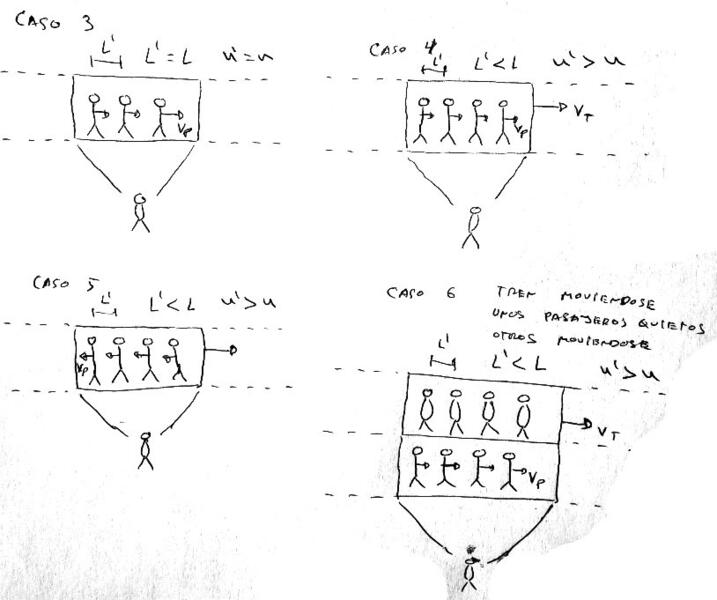 CASO 3
L' L' = L u' = u
VP
CASO 4
L' L' < L u' > u
VT
VP
CASO 5
L' L' < L u' > u
VP
CASO 6 TREN MOVIENDOSE
UNOS PASAJEROS QUIETOS
OTROS MOVIENDOSE
L' L' < L u' > u
VT
VP